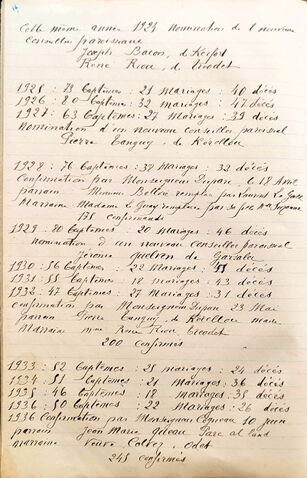 Cette même année 1924 nomination de nouveaux
conseillers paroissiaux
Joseph Bacon, de Keifort
René Riou, de Creodet
1925 : 73 Baptêmes : 21 mariages : 40 décès
1926 : 80 Baptêmes : 32 mariages : 47 décès
1927 : 63 Baptêmes : 27 Mariages : 39 décès
Nomination d'un nouveau conseiller paroissial
Pierre Tanguy, de Kérellou
1928 : 76 Baptêmes : 37 Mariages : 32 décès
Confirmation par Monseigneur Duparc, le 18 Avril
parrain
Marraine Madame Le Guay remplacée par sa fille
178 confirmands
1929 : 80 Baptêmes : 20 mariages : 46 décès
nomination d'un nouveau conseiller paroissial
Jérôme
1930 : 56 Baptêmes : 22 Mariages : décès
1931 : 58 Baptêmes : 18 mariages : 43 décès
1932 : 47 Baptêmes : 27 Mariages : 31 décès
Confirmation par Monseigneur Duparc 23 Mai
parrain Pierre Tanguy, de Kérellou maire
Marraine Mme René Riou Creodet
200 confirmés
1933 : 52 Baptêmes : 25 mariages : 24 décès
1934 : 51 Baptêmes : 21 Mariages : 36 décès
1935 : 46 Baptêmes : 18 mariages : 38 décès
1936 : 50 Baptêmes : 22 Mariages : 26 décès
1936 Confirmation par Monseigneur Cogneau 10 juin
parrain Jean Marie
marraine Veuve Calvez, Odet
245 confirmés